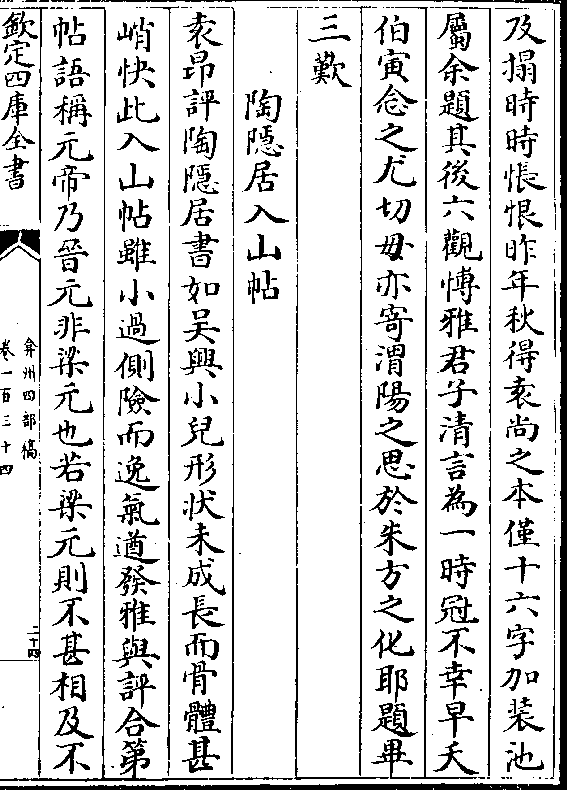 及搨時時悵恨昨年秋得袁尚之本僅十六字加装池
屬余題其後六觀愽雅君子清言為一時冠不幸早夭
伯寅念之尤切毋亦寄渭陽之思於朱方之化耶題畢
三歎
陶隱居入山帖
袁昂評陶隱居書如吴興小兒形状未成長而骨體甚
峭快此入山帖雖小過側險而逸氣遒發雅與評合第
帖語稱元帝乃晉元非梁元也若梁元則不甚相及不
欽定四庫全書
弇州四部稿
卷一百三十四
二十四